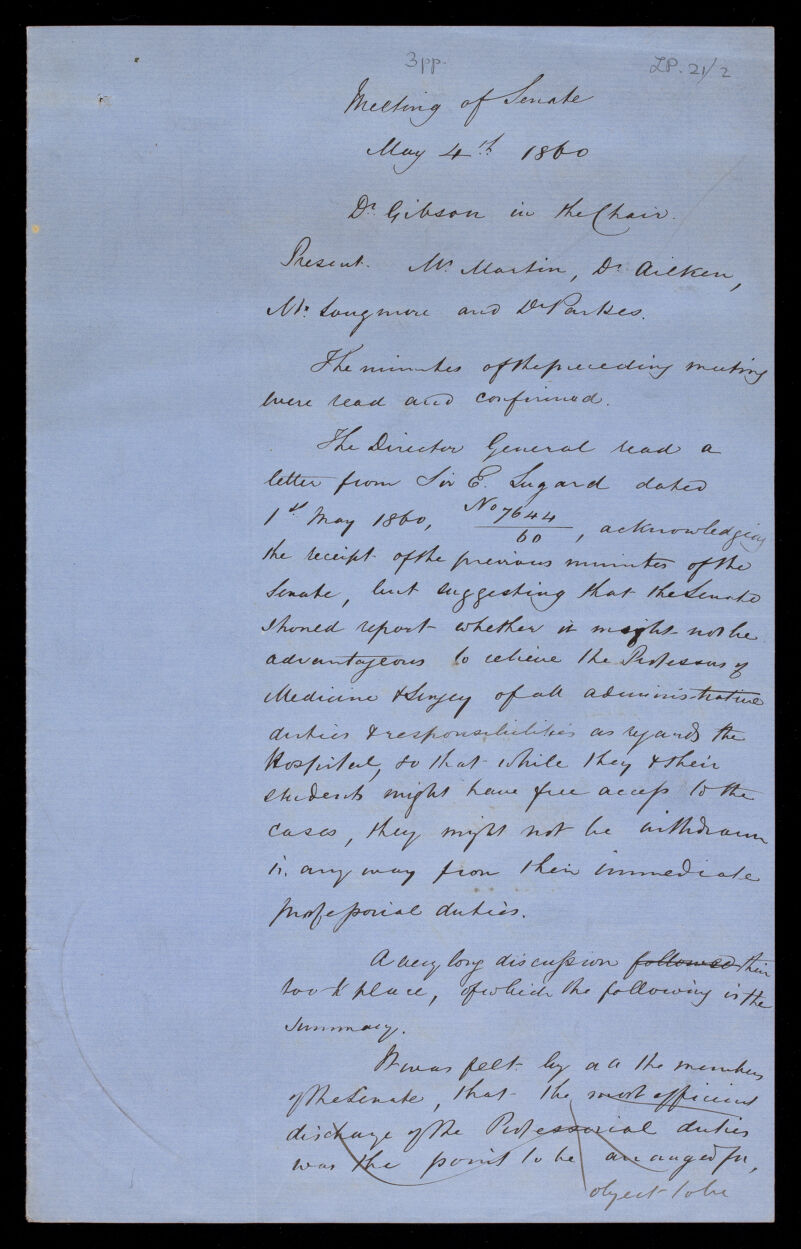 3pp. LP. 21/2
Meeting of Senate
May 4th 1860
Dr. Gibson in the Chair.
Present. Mr Martin, Dr Aitken,
Mr. Longmore and Dr Parkes.
The minutes of the preceding meeting
were read and confirmed.
The Director General read a
letter from Sir E. Lugard dated
1st May 1860, No 7644/60, acknowledging
the receipt of the previous minutes of the
Senate, but suggesting that the Senate
should report whether it might not be
advantageous to relieve the Professors of
Medicine & Surgery of all administrative
duties & responsibilities as regards the
Hospital, so that while they & their
students might have free access to the
cases, they might not be withdrawn
in any way from their immediate
professorial duties.
A very long discussion followed then
took place, of which the following is the
summary.
It was felt by all the members
of the Senate, that the most efficient
discharge of the Professorial duties
was the point to be arranged for,
object to be